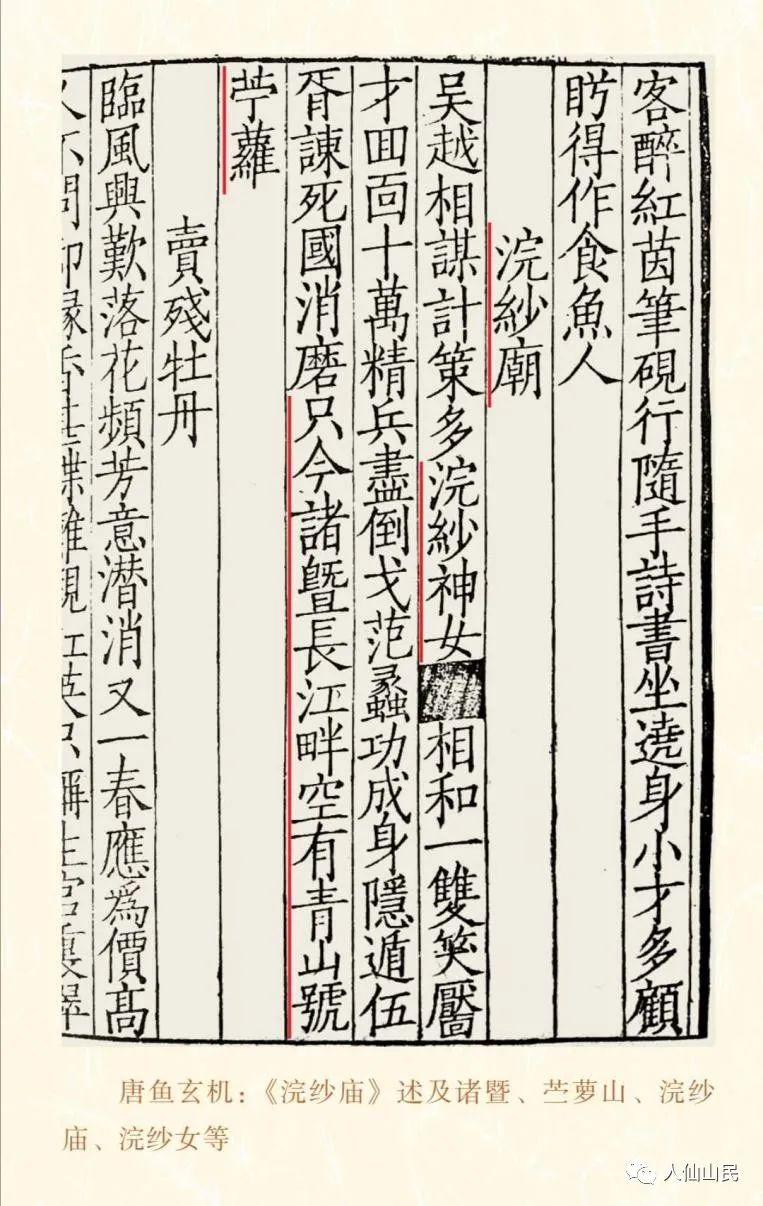 客醉紅茵筆硯行隨手詩書坐遶身小才多顧
眄得作食魚人
浣紗廟
吳越相謀計策多浣紗神女相和一雙笑靨
才囬面十萬精兵盡倒戈范蠡功成身隱遁伍
胥諫死國消磨只今諸暨長江畔空有青山號
苧蘿
賣殘牡丹
臨風興歎落花頻芳意潜消又一春應為價高
人不問却緣香甚蝶難親紅英只稱生宮裏翠
唐鱼玄机：《浣纱庙》述及诸暨、苎萝山、浣纱
庙、浣纱女等
人仙山民